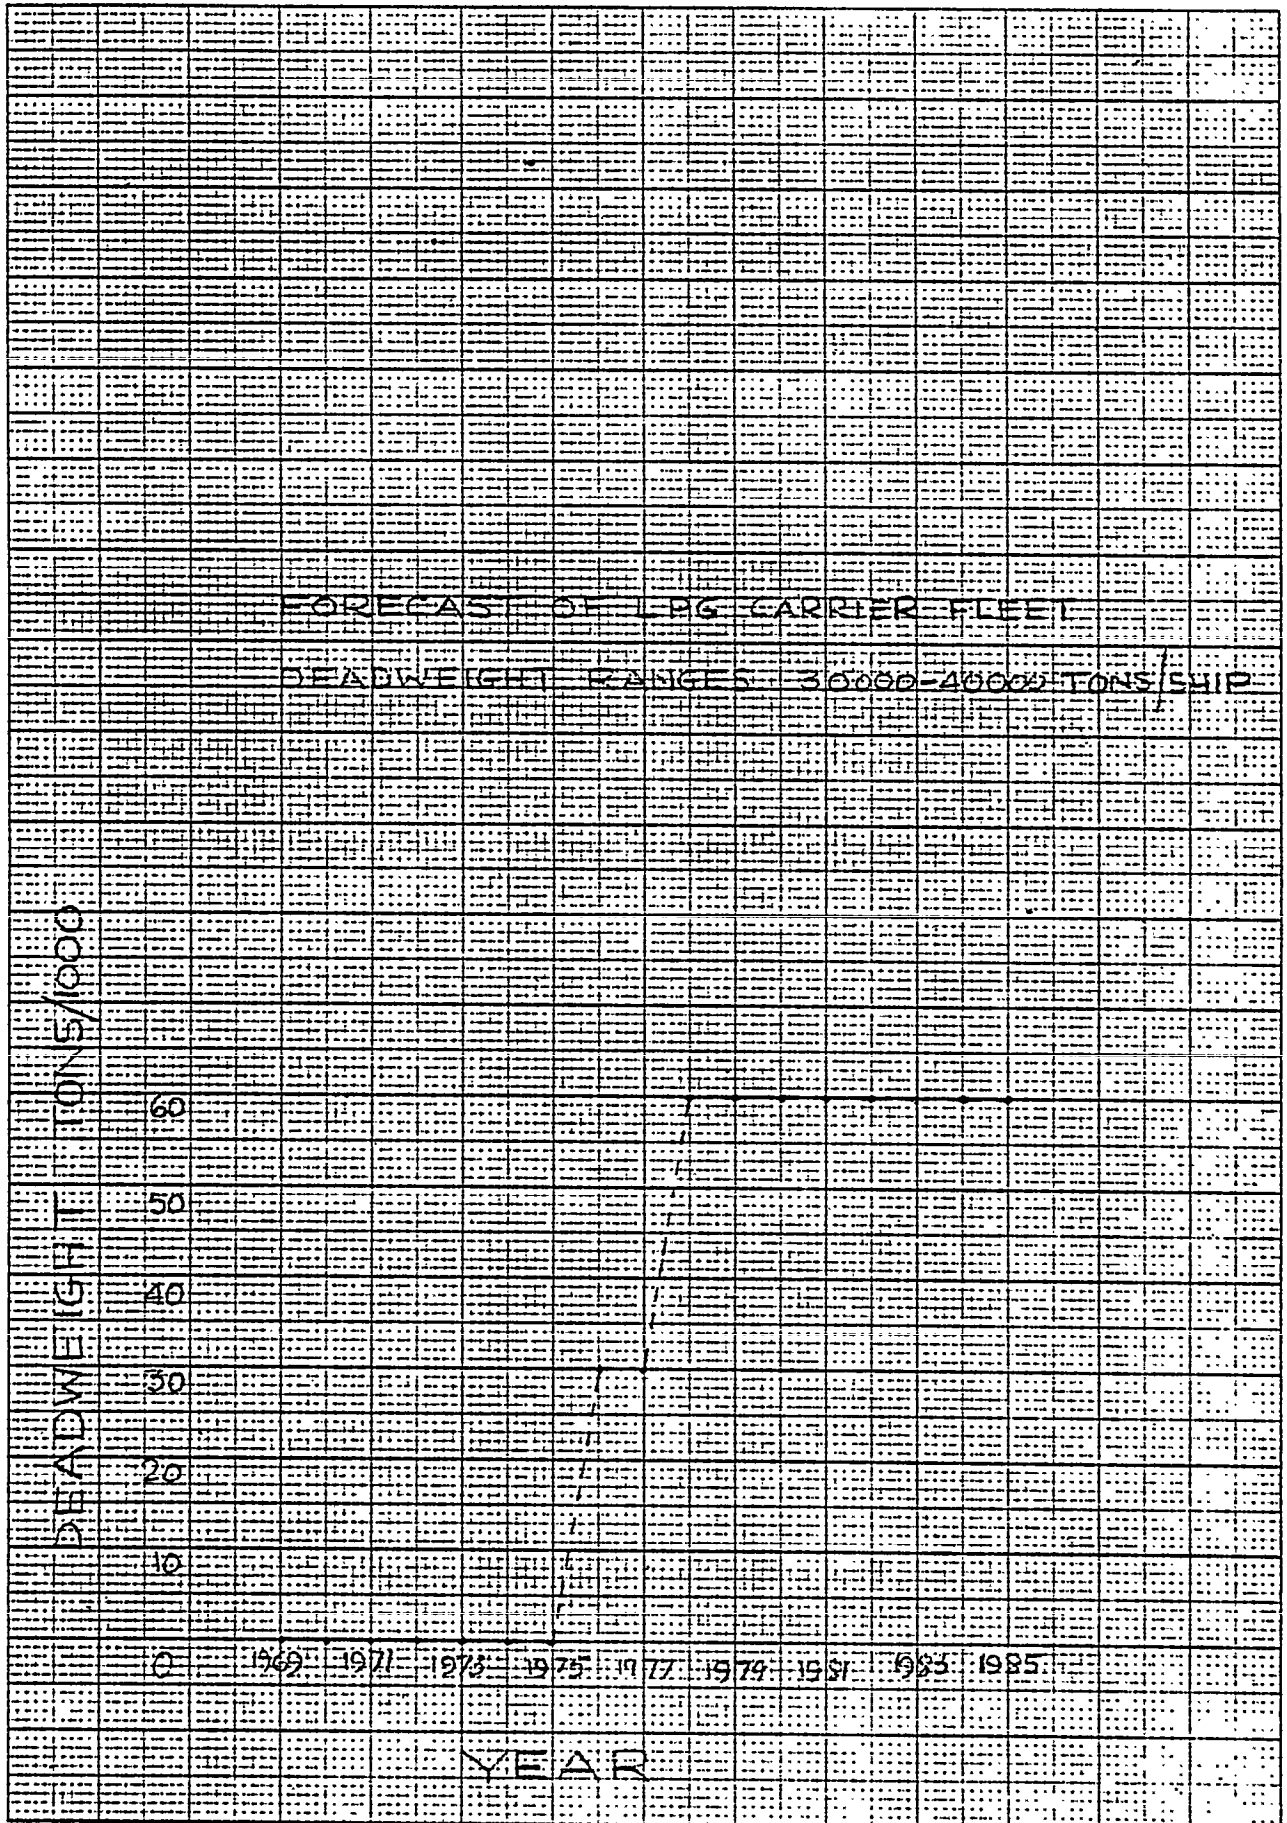 FORECAST OF LPG CARRIER FLEET
DEADWEIGHT RANGES 30000-40000 TONS/SHIP
DEADWEIGHT TONS/1000
60
50
40
30
20
10
0 1969 1971 1973 1975 1977 1979 1981 1983 1985
YEAR